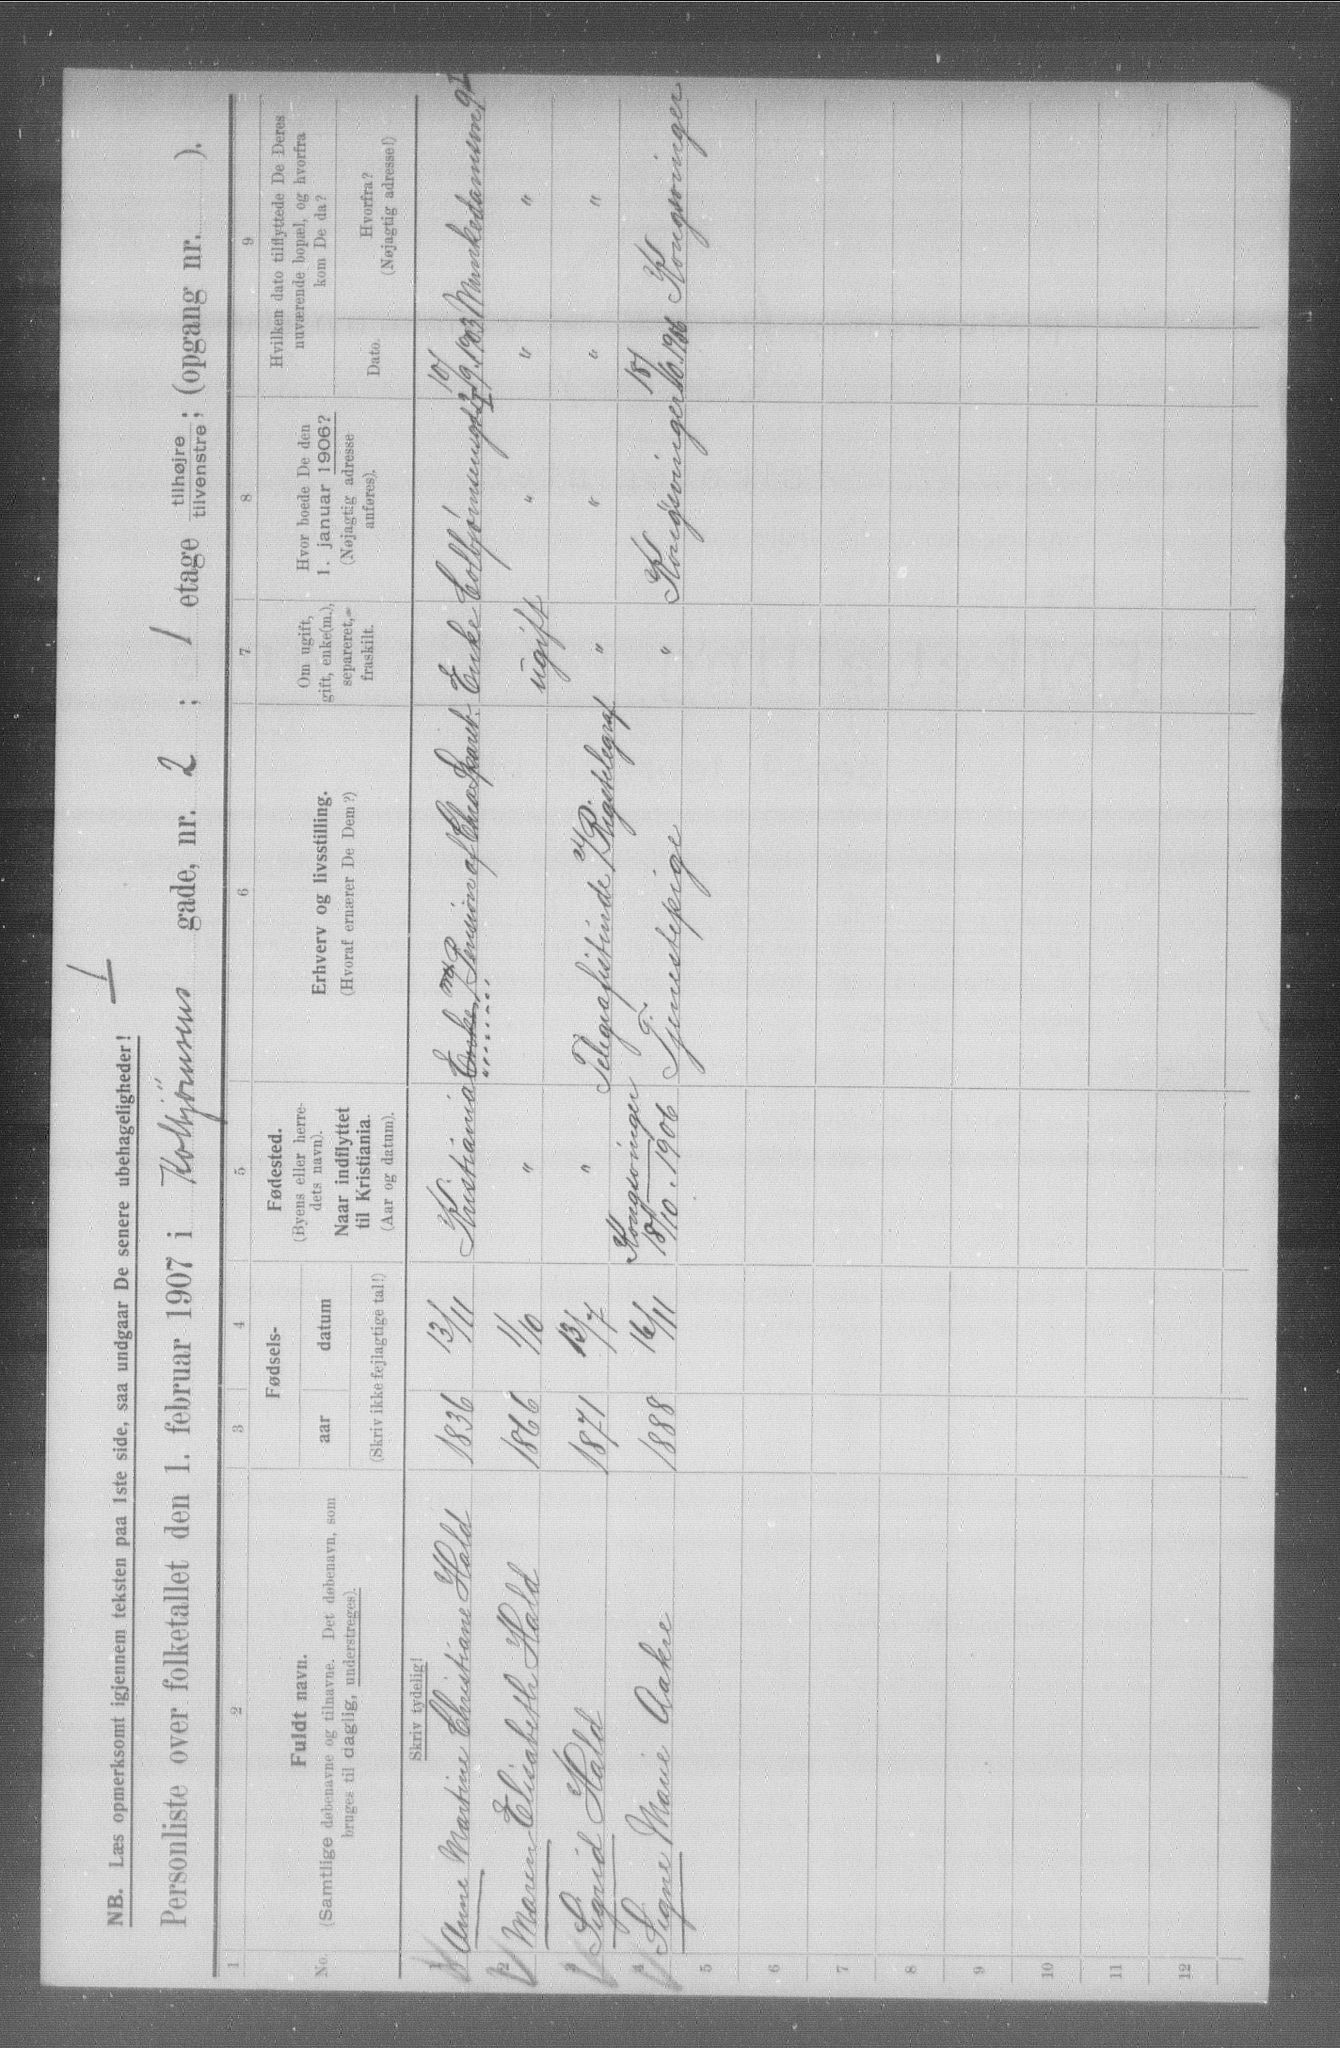 1
NB. Læs opmerksomt igjennem teksten paa 1ste side, saa undgaar De senere ubehageligheder!
Personliste over folketallet den 1. februar 1907 i Kolbjørnsens gade, nr. 2 ; 1 etage tilhøjre tilvenstre ; (opgang nr. ).
1 2 3 4 5 6 7 8 9
No.
Fuldt navn.
(Samtlige døbenavne og tilnavne. Det døbenavn, som
bruges til daglig, understreges).
Fødsels-
aar datum
(Skriv ikke fejlagtige tal!)
Fødested.
(Byens eller herre-
dets navn).
Naar indflyttet
til Kristiania.
(Aar og datum).
Erhverv og livsstilling.
(Hvoraf ernærer De Dem?)
Om ugift,
gift, enke(m.),
separeret,
fraskilt.
Hvor boede De den
1. januar 1906?
(Nøjagtig adresse
anføres).
Hvilken dato tilflyttede De Deres
nuværende bopæl, og hvorfra
kom De da?
Dato.
Hvorfra?
(Nøjagtig adresse!)
Skriv tydelig!
1 Anne Martine Christiane Hald 1836 13/11 Kristiania Enke, Pension af Enke Colbjørnsensgd 2 I 10/9 1903 Munkedamsvn 9 I
2 Maren Elisabeth Hald 1866 1/10 " ugift " " "
3 Sigrid Hald 1871 13/7 " Telegrafistinde v/Rigstelegraf " " " "
4 Signe Marie Aakre 1888 16/11 Kongsvinger 18/10. 1906 Tjenestepige " Kongsvinger 18/10. 1906 Kongsvinger
5
6
7
8
9
10
11
12